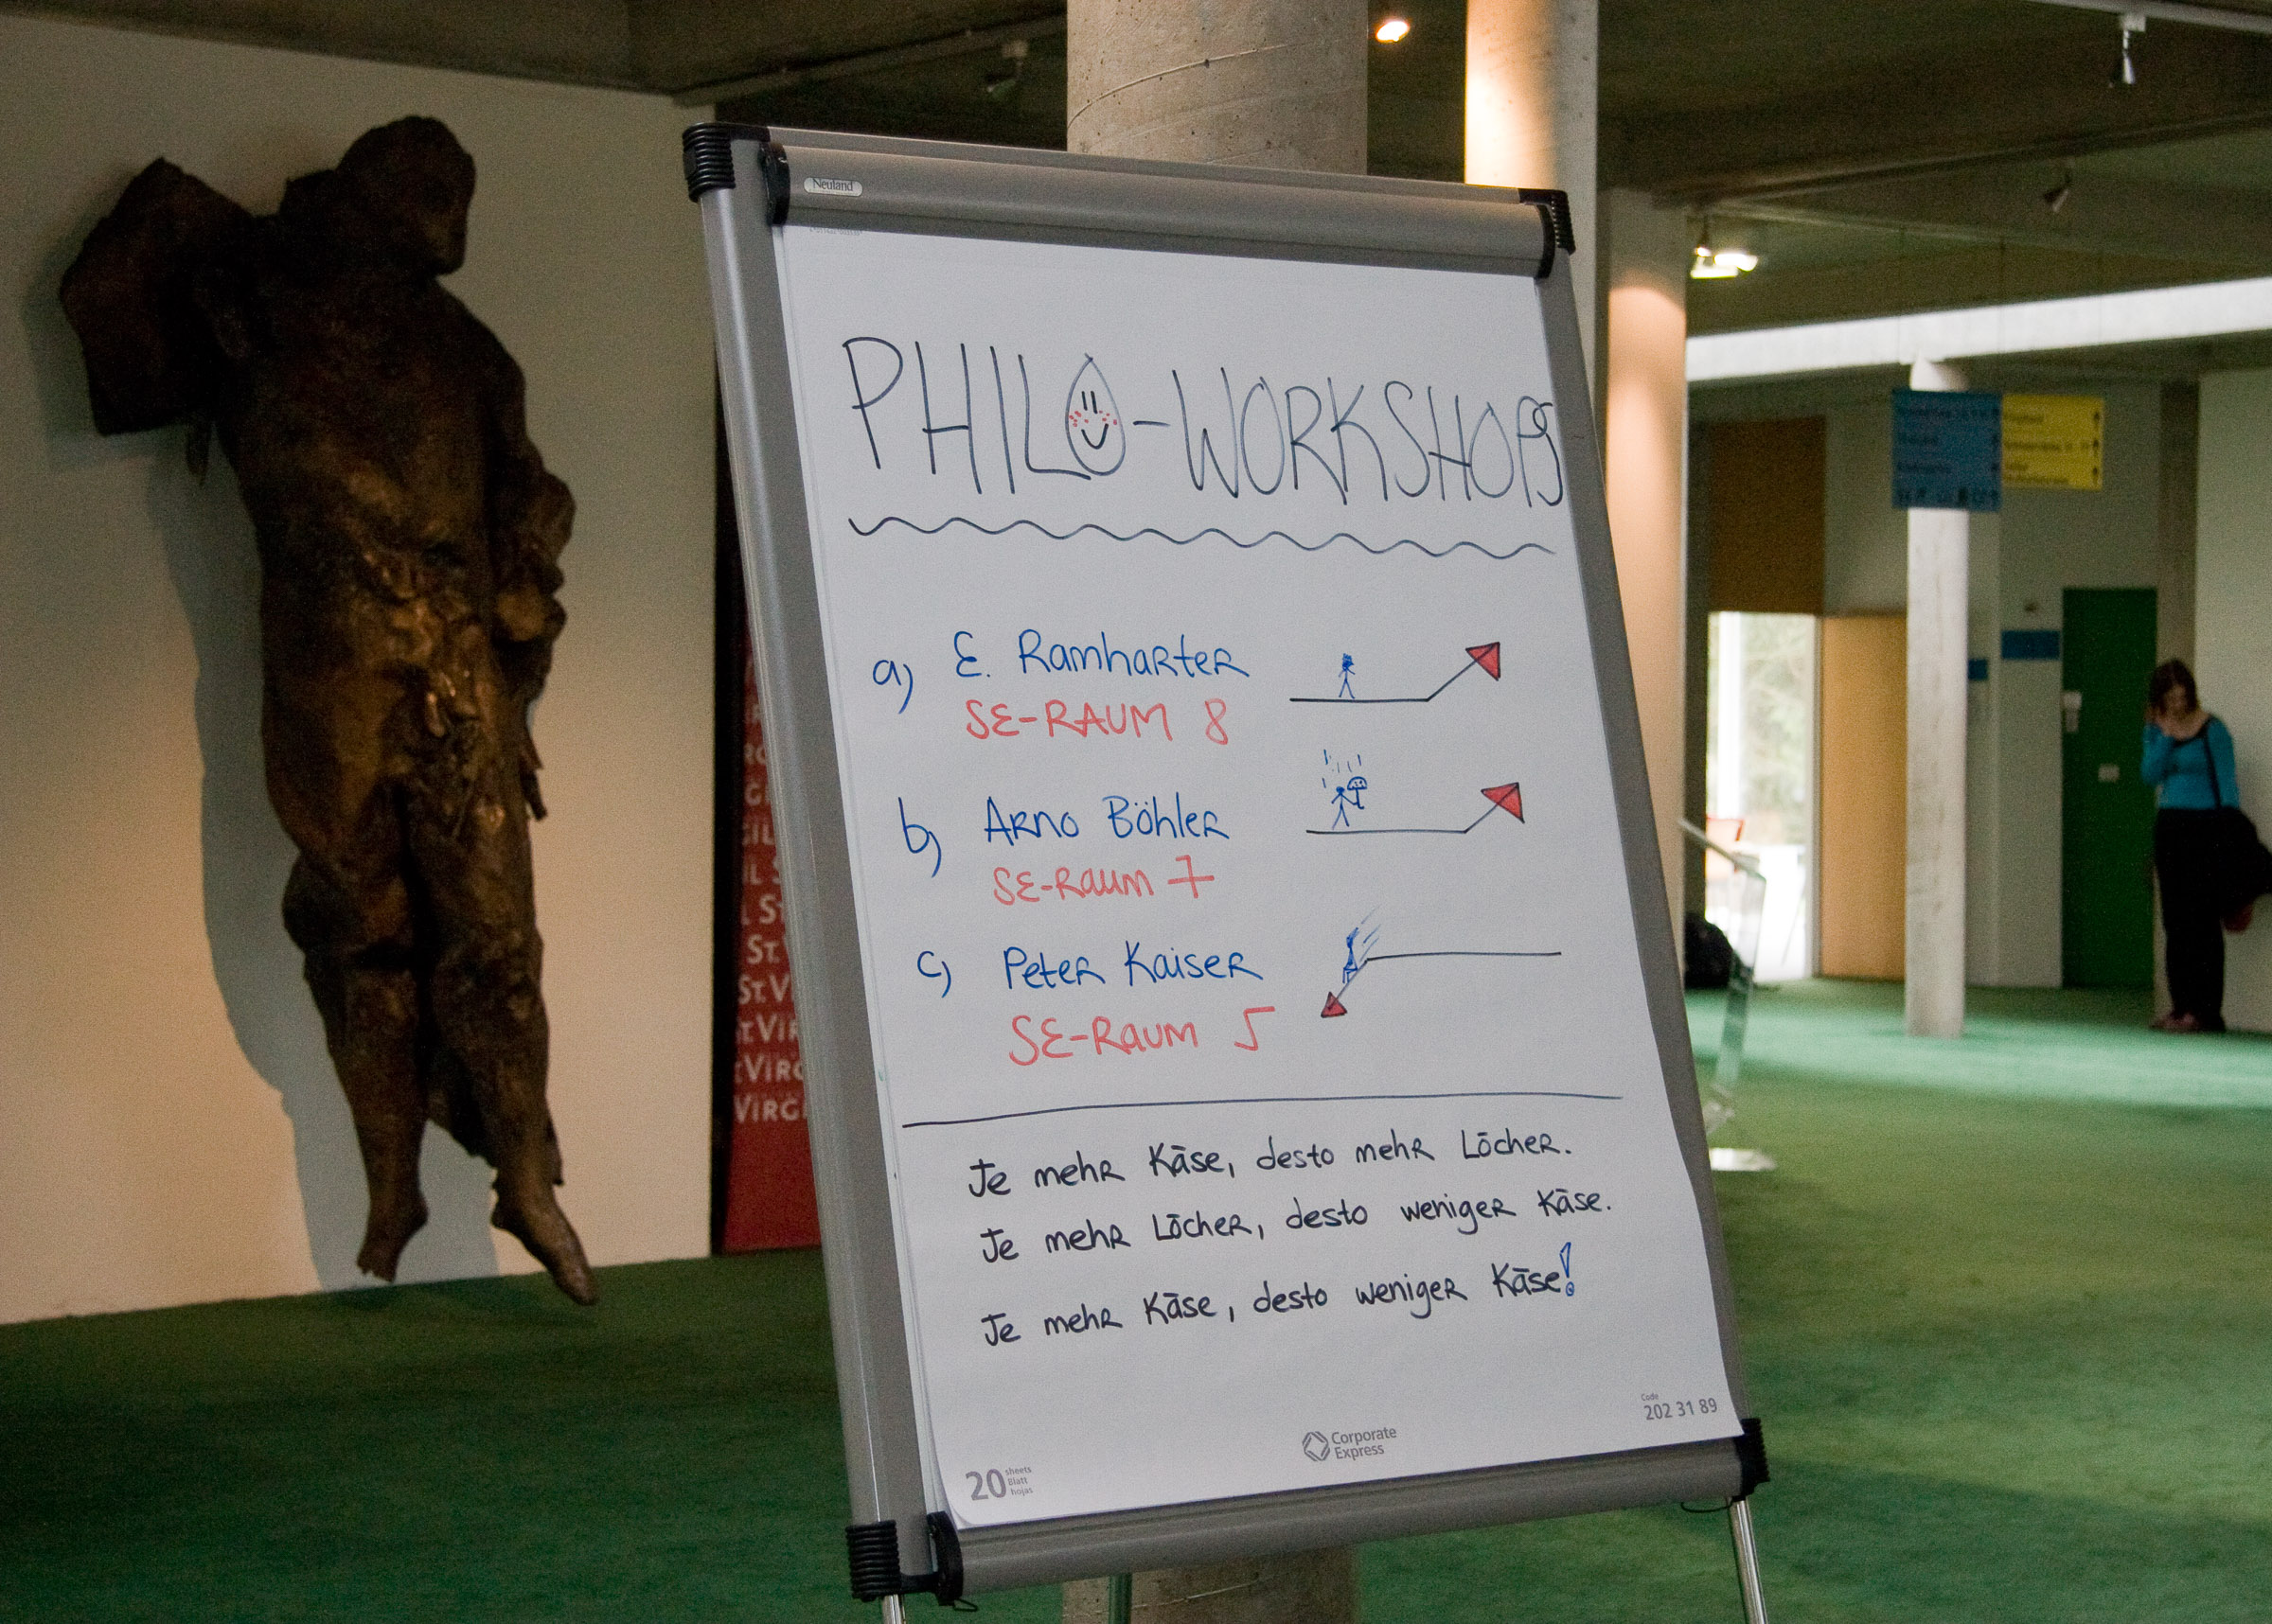 Neuland
PHILO-WORKSHOPS
a) E. Ramharter
SE-RAUM 8
b) Arno Böhler
SE-Raum 7
c) Peter Kaiser
SE-Raum 5
Je mehr Käse, desto mehr Löcher.
Je mehr Löcher, desto weniger Käse.
Je mehr Käse, desto weniger Käse!
Code
202 31 89
Corporate
Express
20 sheets
Blatt
hojas
ST.
ST.V
ST.VIR
VIRG
VIRG